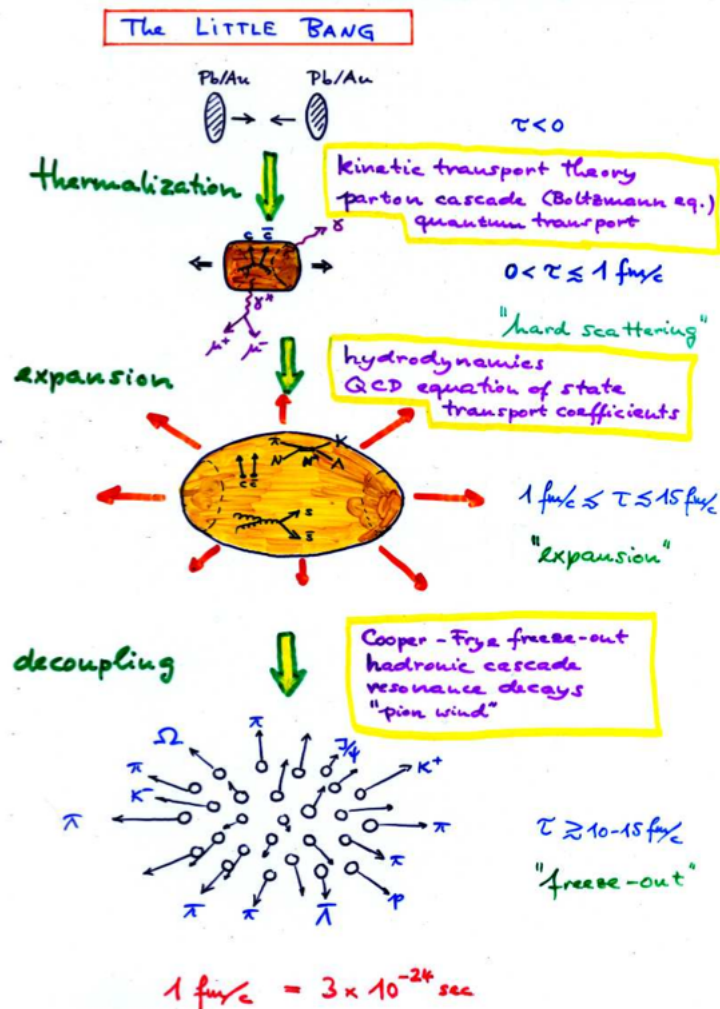 The LITTLE BANG
Pb/Au Pb/Au
τ<0
thermalization
kinetic transport theory
parton cascade (Boltzmann eq.)
quantum transport
c c̄ γ
0 < τ ≲ 1 fm/c
γ*
μ+ μ-
"hard scattering"
expansion
hydrodynamics
QCD equation of state
transport coefficients
π K
N N* Λ
c c̄
s
s̄
1 fm/c ≲ τ ≲ 15 fm/c
"expansion"
decoupling
Cooper-Frye freeze-out
hadronic cascade
resonance decays
"pion wind"
Ω π J/ψ
π K+
K-
π π
τ ≳ 10-15 fm/c
π
"freeze-out"
π π Λ̄ p
1 fm/c = 3 × 10^-24 sec